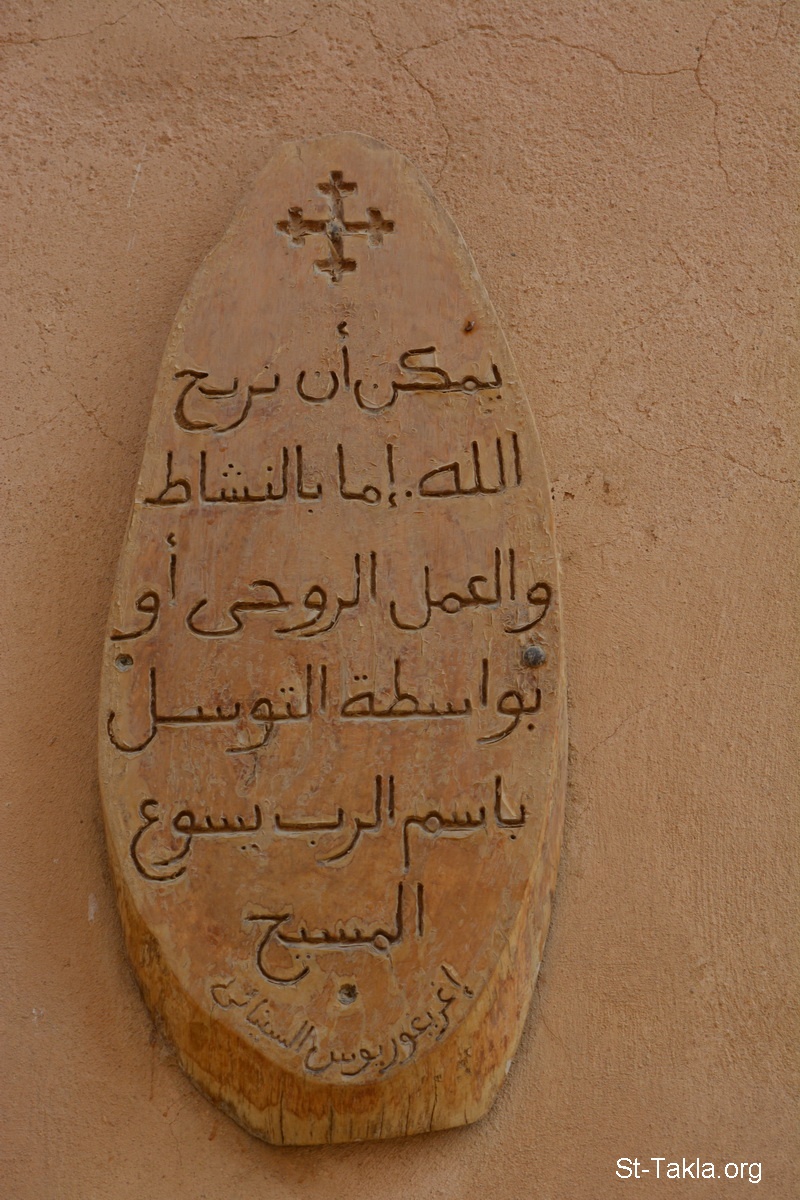 يُمكن أن نربح
الله. إما بالنشاط
والعمل الروحى أو
بواسطة التوسل
باسم الرب يسوع
المسيح
إغريغوريوس السينائى
St-Takla.org